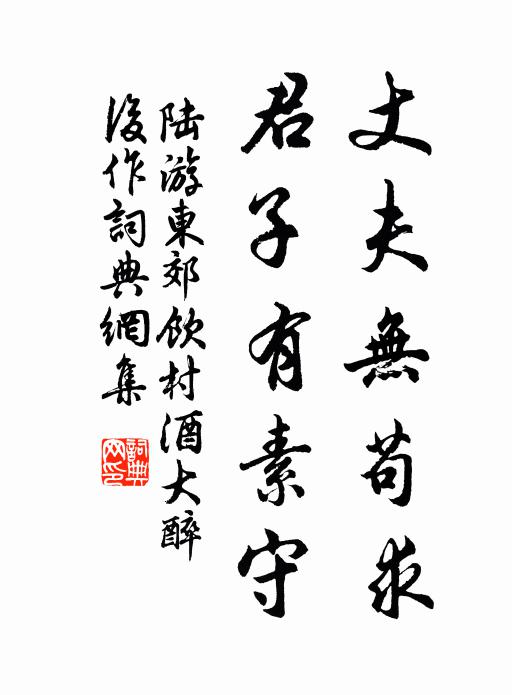 丈夫無苟求
君子有素守
陆游東郊飲村酒大醉
後作詞典網集
詞典
网印